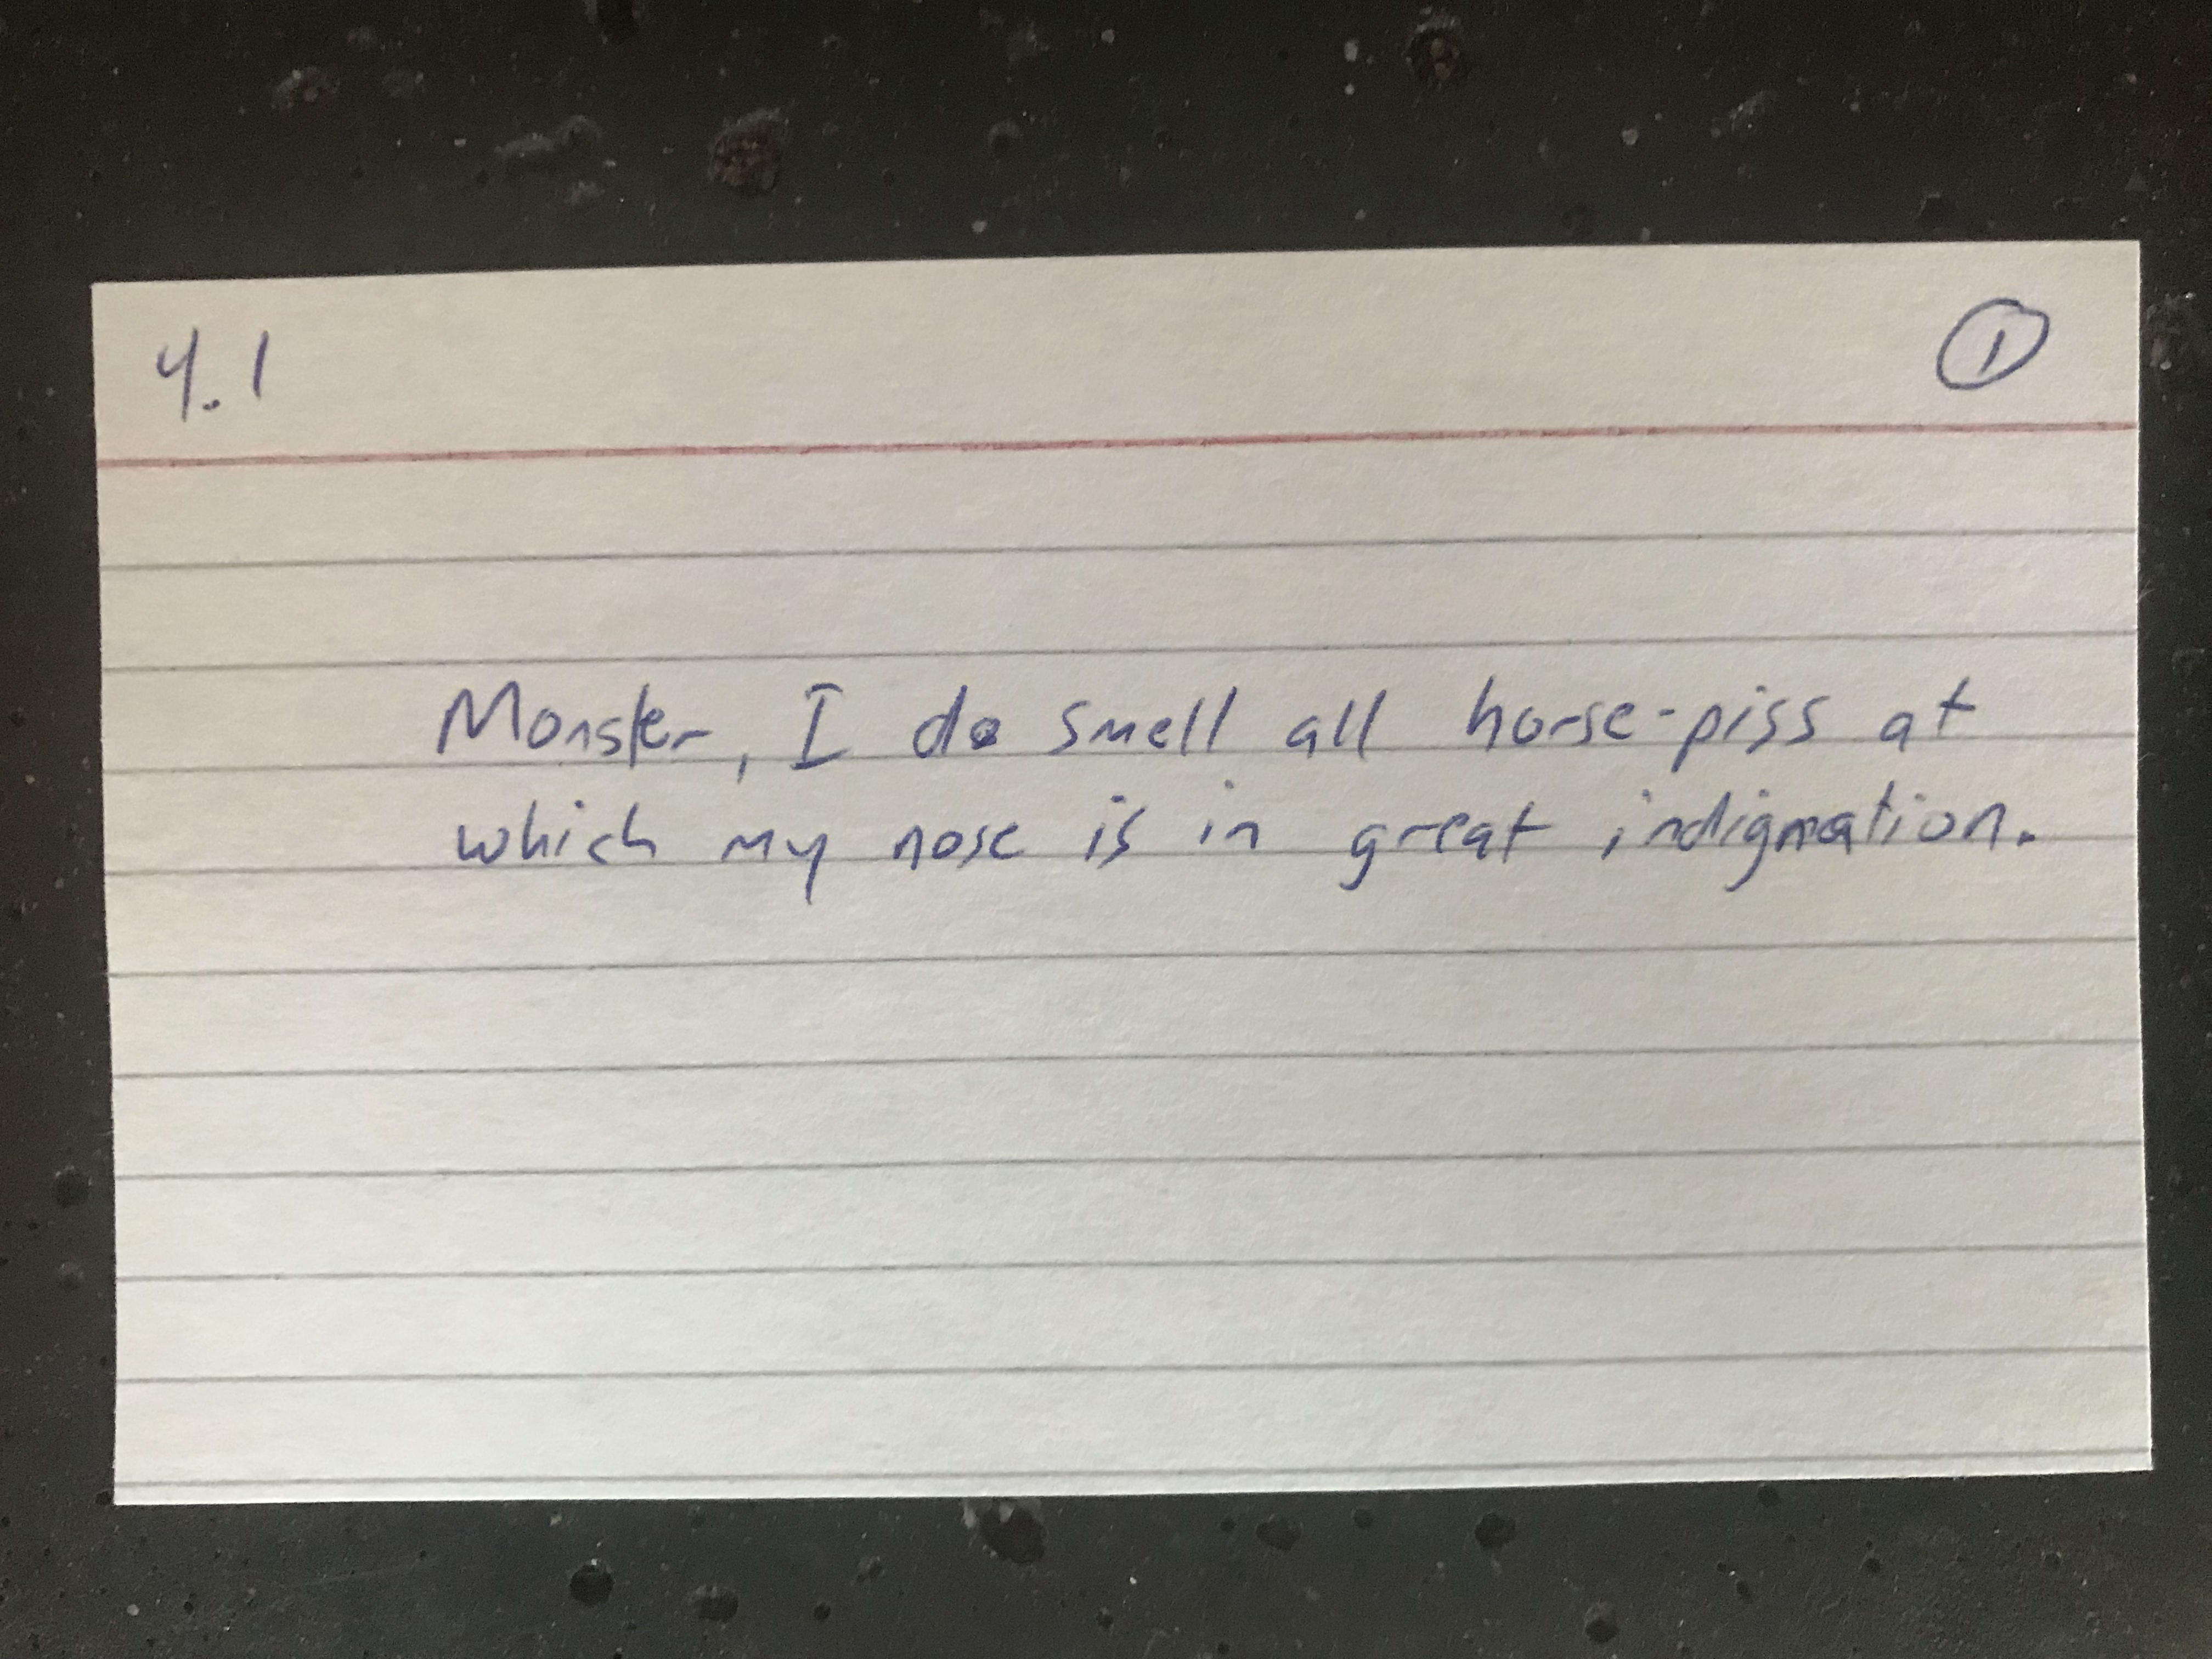 4.1 1
Monster, I do smell all horse-piss at
which my nose is in great indignation.